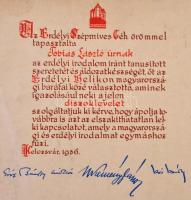 Az Erdélyi Szépmives Céh örömmel
tapasztalta
Tobias László úrnak
az erdélyi irodalom iránt tanusított
szeretetét és áldozatkészségét, őt az
Erdélyi Helikon magyarországi
barátai közé választotta, aminek
igazolásául neki a jelen
díszoklevelet
szolgáltatjuk ki kérve, hogy ápolja to-
vábbra is azt az elszakíthatatlan lel-
ki kapcsolatot, amely a magyarorszá-
gi és erdélyi irodalmat egymáshoz
fűzi.
Kolozsvár, 1936.